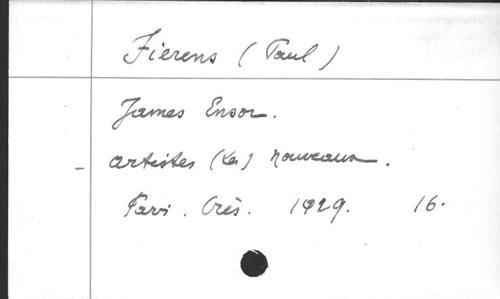 Fierens (Paul)
James Ensor.
artistes (Les) nouveaux.
Paris. Crès. 1929. 16.